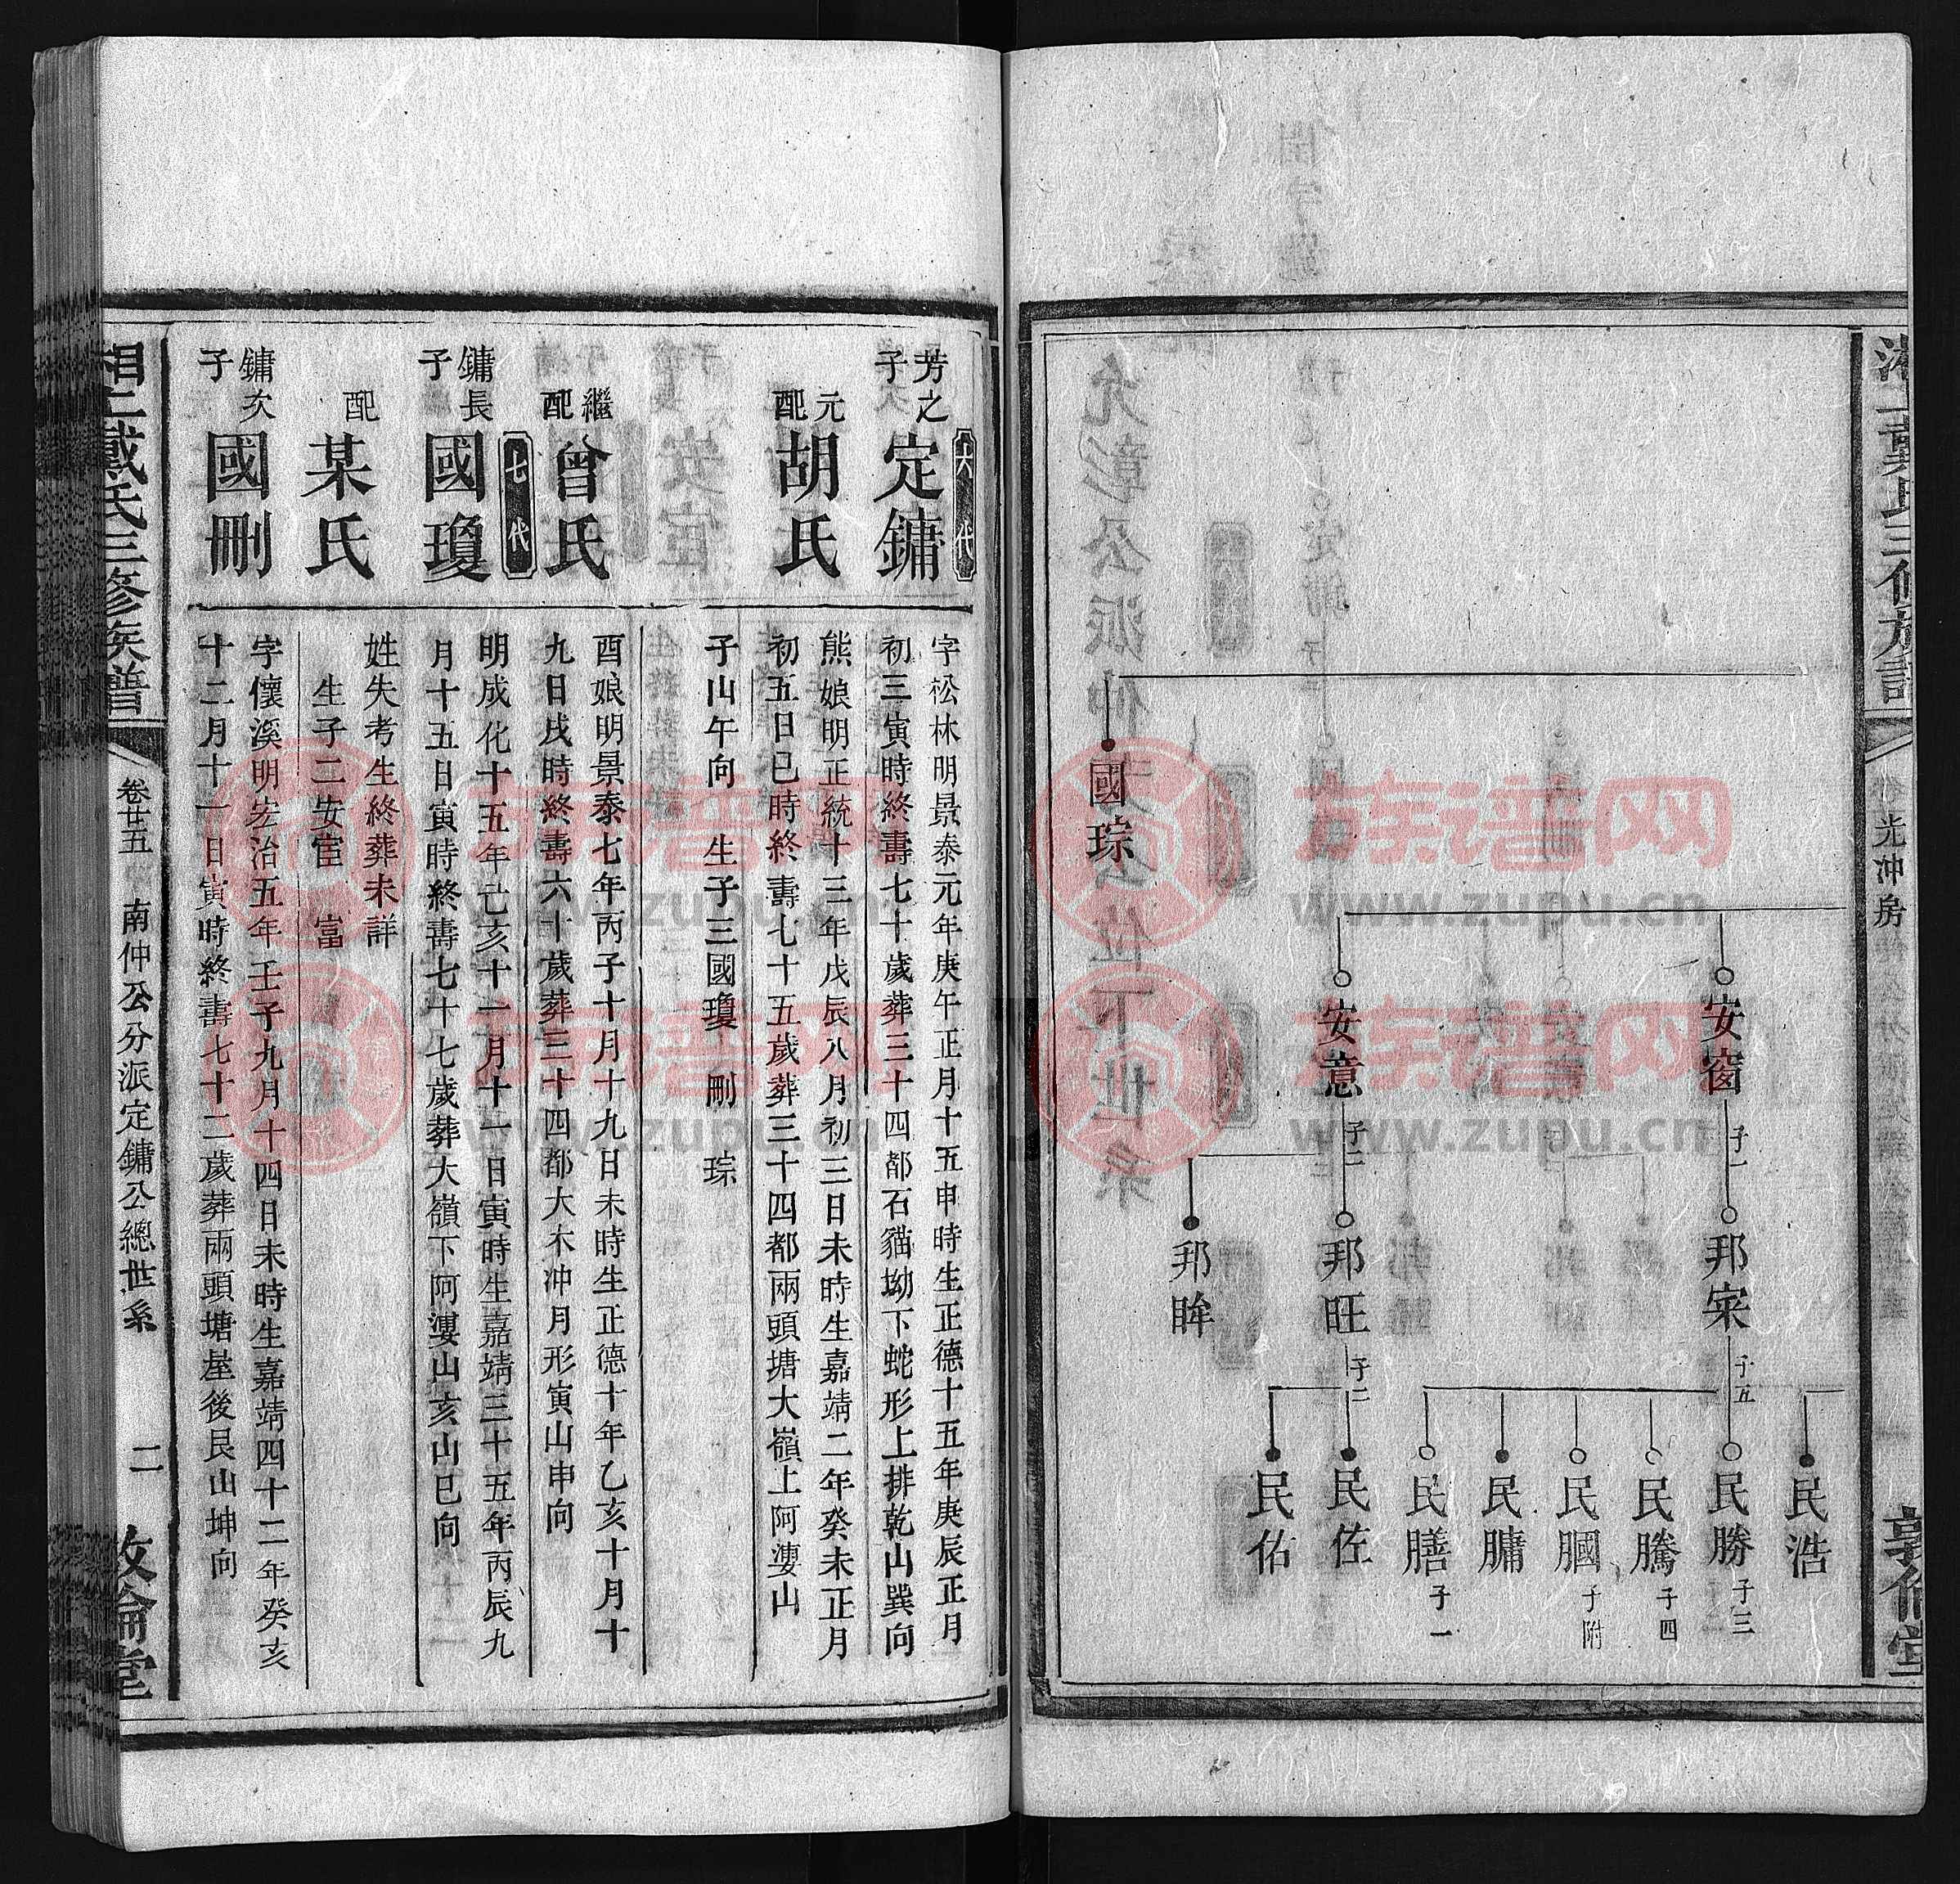 國琮
安窗
子一
安意
子二
邦宋
子五
邦旺
子二
邦眸
民浩
民勝
子三
民騰
子四
民膕
子附
民膅
民膳
子一
民佐
民佑
光冲房
敦倫堂
六代
芳之子
定鏞
字松林明景泰元年庚午正月十五申時生正德十五年庚辰正月
初三寅時終壽七十歲葬三十四都石貓坳下蛇形上排乾山巽向
元配
胡氏
熊娘明正統十三年戊辰八月初三日未時生嘉靖二年癸未正月
初五日巳時終壽七十五歲葬三十四都兩頭塘大嶺上阿漊山
子山午向 生子三國瓊 刪 琮
繼配
曾氏
酉娘明景泰七年丙子十月十九日未時生正德十年乙亥十月十
九日戌時終壽六十歲葬三十四都大木冲月形寅山申向
七代
鏞長子
國瓊
明成化十五年己亥十一月十一日寅時生嘉靖三十五年丙辰九
月十五日寅時終壽七十七歲葬大嶺下阿漊山亥山巳向
配
某氏
姓失考生終葬未詳
生子二安宦 富
鏞次子
國刪
字儴溪明宏治五年壬子九月十四日未時生嘉靖四十二年癸亥
十二月十一日寅時終壽七十二歲葬兩頭塘屋後艮山坤向
戴氏三修族譜
卷廿五 南仲公分派定鏞公總世系
二
敦倫堂
族谱网
www.zupu.cn
族谱网
www.zupu.cn
族谱网
www.zupu.cn
族谱网
www.zupu.cn